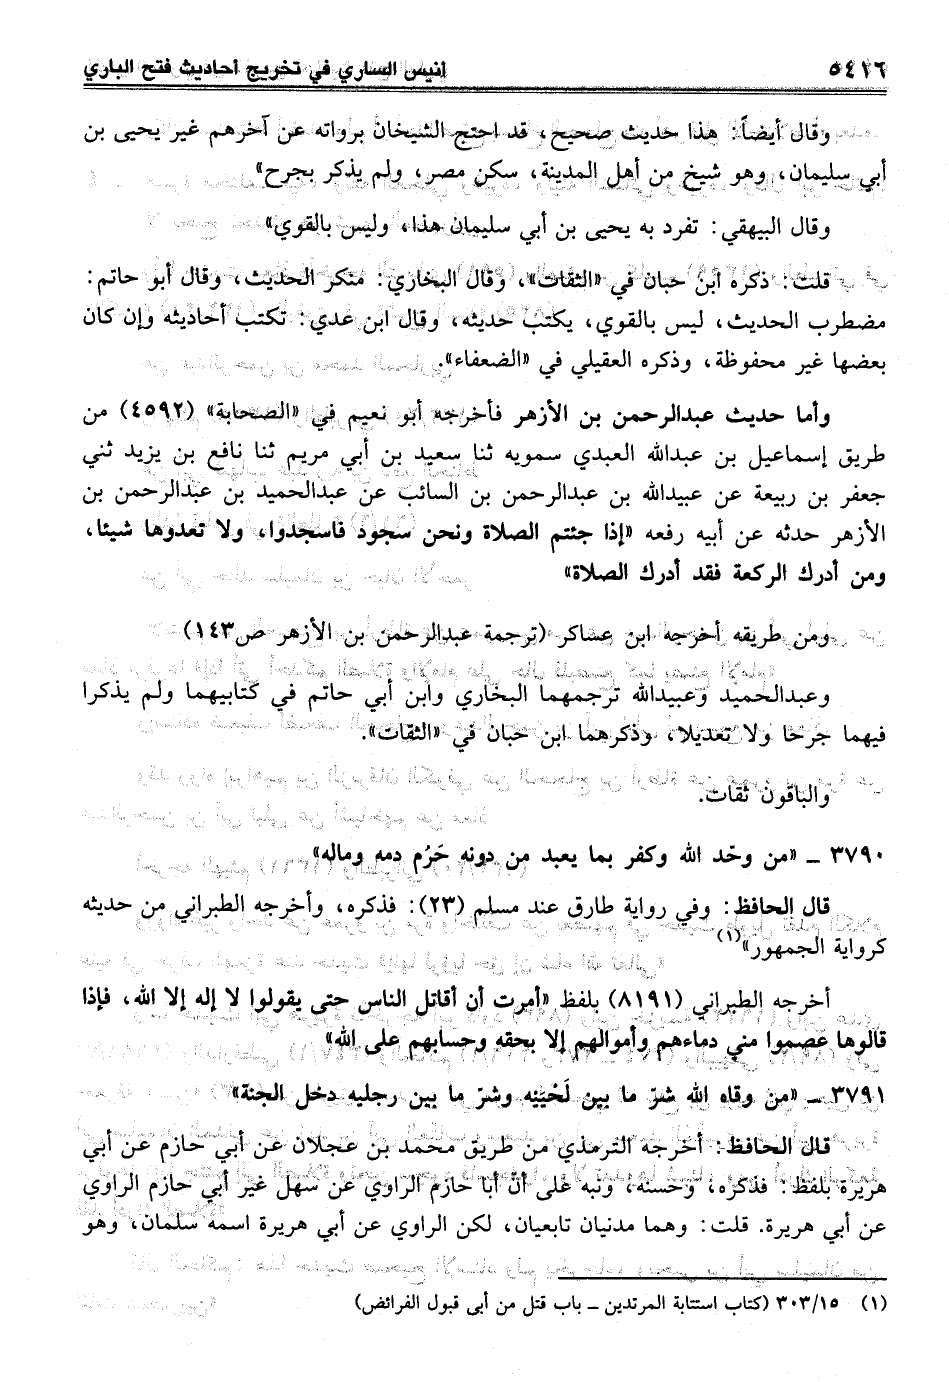 ٥٤١٦ أنيس الساري في تخريج أحاديث فتح الباري
وقال أيضاً: هذا حديث صحيح، قد احتج الشيخان برواته عن آخرهم غير يحيى بن
أبي سليمان، وهو شيخ من أهل المدينة، سكن مصر، ولم يذكر بجرح»
وقال البيهقي: تفرد به يحيى بن أبي سليمان هذا، وليس بالقوي»
قلت: ذكره ابن حبان في «الثقات»، وقال البخاري: منكر الحديث، وقال أبو حاتم:
مضطرب الحديث، ليس بالقوي، يكتب حديثه، وقال ابن عدي: تكتب أحاديثه وإن كان
بعضها غير محفوظة، وذكره العقيلي في «الضعفاء».
وأما حديث عبدالرحمن بن الأزهر فأخرجه أبو نعيم في «الصحابة» (٤٥٩٢) من
طريق إسماعيل بن عبدالله العبدي سمويه ثنا سعيد بن أبي مريم ثنا نافع بن يزيد ثني
جعفر بن ربيعة عن عبيدالله بن عبدالرحمن بن السائب عن عبدالحميد بن عبدالرحمن بن
الأزهر حدثه عن أبيه رفعه «إذا جئتم الصلاة ونحن سجود فاسجدوا، ولا تعدوها شيئا،
ومن أدرك الركعة فقد أدرك الصلاة»
ومن طريقه أخرجه ابن عساكر (ترجمة عبدالرحمن بن الأزهر ص١٤٣)
وعبدالحميد وعبيدالله ترجمهما البخاري وابن أبي حاتم في كتابيهما ولم يذكرا
فيهما جرحا ولا تعديلا، وذكرهما ابن حبان في «الثقات».
والباقون ثقات.
٣٧٩٠ ــ «من وحّد الله وكفر بما يعبد من دونه حَرُم دمه وماله»
قال الحافظ: وفي رواية طارق عند مسلم (٢٣): فذكره، وأخرجه الطبراني من حديثه
كرواية الجمهور»(١)
أخرجه الطبراني (٨١٩١) بلفظ «أمرت أن أقاتل الناس حتى يقولوا لا إله إلا الله، فإذا
قالوها عصموا مني دماءهم وأموالهم إلا بحقه وحسابهم على الله»
٣٧٩١ ــ «من وقاه الله شرّ ما بين لَحْيَيْه وشرّ ما بين رجليه دخل الجنة»
قال الحافظ: أخرجه الترمذي من طريق محمد بن عجلان عن أبي حازم عن أبي
هريرة بلفظ: فذكره، وحسنه، ونبه على أنّ أبا حازم الراوي عن سهل غير أبي حازم الراوي
عن أبي هريرة. قلت: وهما مدنيان تابعيان، لكن الراوي عن أبي هريرة اسمه سلمان، وهو
(١) ٣٠٣/١٥ (كتاب استتابة المرتدين ــ باب قتل من أبى قبول الفرائض)